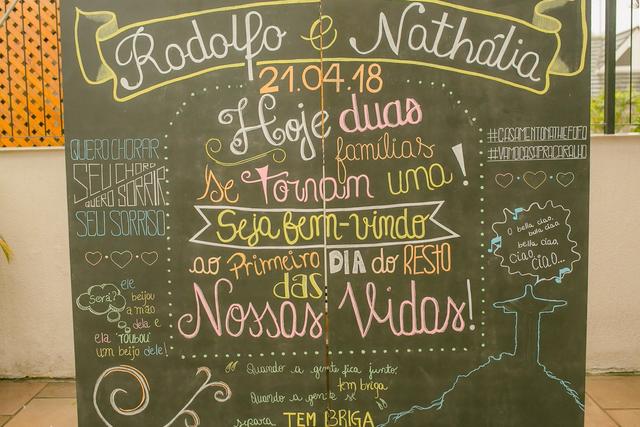 Rodolfo e Nathália
21.04.18
Hoje duas
famílias
se tornam uma!
Seja bem-vindo
ao Primeiro DIA do RESTO
das
Nossas Vidas!
QUERO CHORAR
SEU CHORO
QUERO SORRIR
SEU SORRISO
Será?
ele
beijou
a mão
dela e
ela "roubou"
um beijo dele!
#CASAMENTONATHIEFOFO
#VAMOCASAPRACARALHO
O bella ciao,
bella ciao,
bella ciao,
ciao,
ciao...
"Quando a gente fica junto,
tem briga
Quando a gente se
separa TEM BRIGA